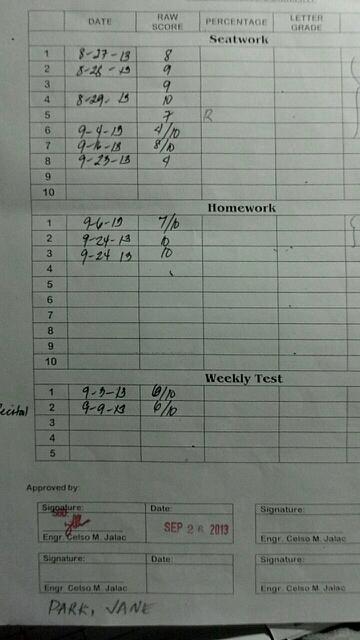 DATE RAW SCORE PERCENTAGE LETTER GRADE
Seatwork
1 8-27-13 8
2 8-28-13 9
3 9
4 8-29-13 10
5 7 R
6 9-4-13 4/10
7 9-16-13 8/10
8 9-23-13 4
9
10
Homework
1 9-6-13 7/10
2 9-24-13 10
3 9-24 13 10
4
5
6
7
8
9
10
Weekly Test
1 9-3-13 6/10
2 9-9-13 6/10
3
4
5
Approved by:
Signature: Date: Signature:
SEP 26 2013
Engr. Celso M. Jalac Engr. Celso M. Jalac
Signature: Date: Signature:
Engr. Celso M. Jalac Engr. Celso M. Jalac
PARK, JANE